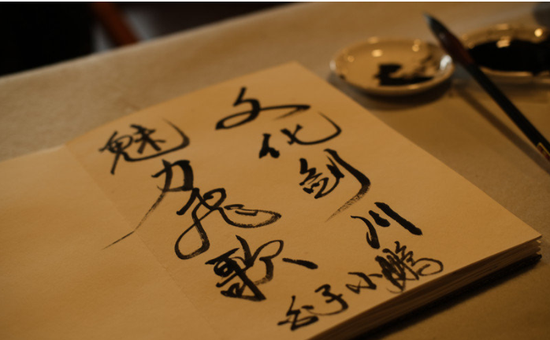 文化剑川
魅力飞歌
公子小鹏